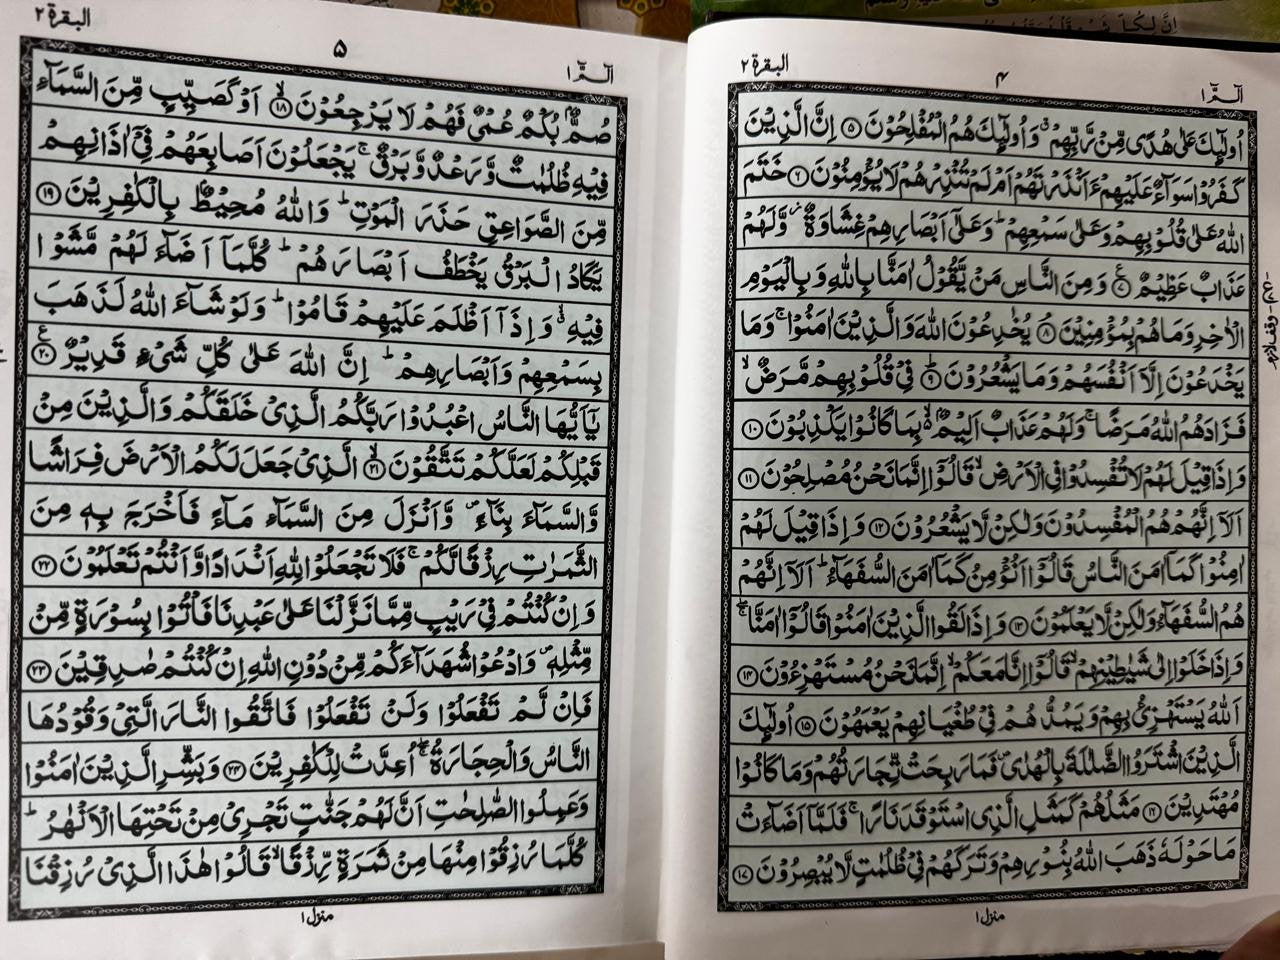 البقرة ٢
٤
الٓمّٓ ١
اُولٰٓئِكَ عَلٰى هُدًى مِّنْ رَّبِّهِمْ ۙ وَاُولٰٓئِكَ هُمُ الْمُفْلِحُوْنَ ۝٥ اِنَّ الَّذِيْنَ
كَفَرُوْا سَوَآءٌ عَلَيْهِمْ ءَاَنْذَرْتَهُمْ اَمْ لَمْ تُنْذِرْهُمْ لَا يُؤْمِنُوْنَ ۝٦ خَتَمَ
اللّٰهُ عَلٰى قُلُوْبِهِمْ وَعَلٰى سَمْعِهِمْ ؕ وَعَلٰٓى اَبْصَارِهِمْ غِشَاوَةٌ ؗ وَّلَهُمْ
عَذَابٌ عَظِيْمٌ ۝٧ وَمِنَ النَّاسِ مَنْ يَّقُوْلُ اٰمَنَّا بِاللّٰهِ وَبِالْيَوْمِ
الْاٰخِرِ وَمَا هُمْ بِمُؤْمِنِيْنَ ۝٨ يُخٰدِعُوْنَ اللّٰهَ وَالَّذِيْنَ اٰمَنُوْا ۚ وَمَا
يَخْدَعُوْنَ اِلَّآ اَنْفُسَهُمْ وَمَا يَشْعُرُوْنَ ؕ ۝٩ فِيْ قُلُوْبِهِمْ مَّرَضٌ ۙ
فَزَادَهُمُ اللّٰهُ مَرَضًا ۚ وَلَهُمْ عَذَابٌ اَلِيْمٌۢ ۙ بِمَا كَانُوْا يَكْذِبُوْنَ ۝١٠
وَاِذَا قِيْلَ لَهُمْ لَا تُفْسِدُوْا فِي الْاَرْضِ ۙ قَالُوْٓا اِنَّمَا نَحْنُ مُصْلِحُوْنَ ۝١١
اَلَآ اِنَّهُمْ هُمُ الْمُفْسِدُوْنَ وَلٰكِنْ لَّا يَشْعُرُوْنَ ۝١٢ وَاِذَا قِيْلَ لَهُمْ
اٰمِنُوْا كَمَآ اٰمَنَ النَّاسُ قَالُوْٓا اَنُؤْمِنُ كَمَآ اٰمَنَ السُّفَهَآءُ ؕ اَلَآ اِنَّهُمْ
هُمُ السُّفَهَآءُ وَلٰكِنْ لَّا يَعْلَمُوْنَ ۝١٣ وَاِذَا لَقُوا الَّذِيْنَ اٰمَنُوْا قَالُوْٓا اٰمَنَّا ۖۚ
وَاِذَا خَلَوْا اِلٰى شَيٰطِيْنِهِمْ ۙ قَالُوْٓا اِنَّا مَعَكُمْ ۙ اِنَّمَا نَحْنُ مُسْتَهْزِءُوْنَ ۝١٤
اَللّٰهُ يَسْتَهْزِئُ بِهِمْ وَيَمُدُّهُمْ فِيْ طُغْيَانِهِمْ يَعْمَهُوْنَ ۝١٥ اُولٰٓئِكَ
الَّذِيْنَ اشْتَرَوُا الضَّلٰلَةَ بِالْهُدٰى ۪ فَمَا رَبِحَتْ تِّجَارَتُهُمْ وَمَا كَانُوْا
مُهْتَدِيْنَ ۝١٦ مَثَلُهُمْ كَمَثَلِ الَّذِي اسْتَوْقَدَ نَارًا ۚ فَلَمَّآ اَضَآءَتْ
مَا حَوْلَهٗ ذَهَبَ اللّٰهُ بِنُوْرِهِمْ وَتَرَكَهُمْ فِيْ ظُلُمٰتٍ لَّا يُبْصِرُوْنَ ۝١٧
منزل ١
البقرة ٢
٥
الٓمّٓ ١
صُمٌّۢ بُكْمٌ عُمْيٌ فَهُمْ لَا يَرْجِعُوْنَ ۙ ۝١٨ اَوْ كَصَيِّبٍ مِّنَ السَّمَآءِ
فِيْهِ ظُلُمٰتٌ وَّرَعْدٌ وَّبَرْقٌ ۚ يَجْعَلُوْنَ اَصَابِعَهُمْ فِيْٓ اٰذَانِهِمْ
مِّنَ الصَّوَاعِقِ حَذَرَ الْمَوْتِ ؕ وَاللّٰهُ مُحِيْطٌۢ بِالْكٰفِرِيْنَ ۝١٩
يَكَادُ الْبَرْقُ يَخْطَفُ اَبْصَارَهُمْ ؕ كُلَّمَآ اَضَآءَ لَهُمْ مَّشَوْا
فِيْهِ ۙ وَاِذَآ اَظْلَمَ عَلَيْهِمْ قَامُوْا ؕ وَلَوْ شَآءَ اللّٰهُ لَذَهَبَ
بِسَمْعِهِمْ وَاَبْصَارِهِمْ ؕ اِنَّ اللّٰهَ عَلٰى كُلِّ شَيْءٍ قَدِيْرٌ ۝٢٠
يٰٓاَيُّهَا النَّاسُ اعْبُدُوْا رَبَّكُمُ الَّذِيْ خَلَقَكُمْ وَالَّذِيْنَ مِنْ
قَبْلِكُمْ لَعَلَّكُمْ تَتَّقُوْنَ ۙ ۝٢١ الَّذِيْ جَعَلَ لَكُمُ الْاَرْضَ فِرَاشًا
وَّالسَّمَآءَ بِنَآءً ۪ وَّاَنْزَلَ مِنَ السَّمَآءِ مَآءً فَاَخْرَجَ بِهٖ مِنَ
الثَّمَرٰتِ رِزْقًا لَّكُمْ ۚ فَلَا تَجْعَلُوْا لِلّٰهِ اَنْدَادًا وَّاَنْتُمْ تَعْلَمُوْنَ ۝٢٢
وَاِنْ كُنْتُمْ فِيْ رَيْبٍ مِّمَّا نَزَّلْنَا عَلٰى عَبْدِنَا فَاْتُوْا بِسُوْرَةٍ مِّنْ
مِّثْلِهٖ ۪ وَادْعُوْا شُهَدَآءَكُمْ مِّنْ دُوْنِ اللّٰهِ اِنْ كُنْتُمْ صٰدِقِيْنَ ۝٢٣
فَاِنْ لَّمْ تَفْعَلُوْا وَلَنْ تَفْعَلُوْا فَاتَّقُوا النَّارَ الَّتِيْ وَقُوْدُهَا
النَّاسُ وَالْحِجَارَةُ ۖۚ اُعِدَّتْ لِلْكٰفِرِيْنَ ۝٢٤ وَبَشِّرِ الَّذِيْنَ اٰمَنُوْا
وَعَمِلُوا الصّٰلِحٰتِ اَنَّ لَهُمْ جَنّٰتٍ تَجْرِيْ مِنْ تَحْتِهَا الْاَنْهٰرُ ؕ
كُلَّمَا رُزِقُوْا مِنْهَا مِنْ ثَمَرَةٍ رِّزْقًا ۙ قَالُوْا هٰذَا الَّذِيْ رُزِقْنَا
منزل ١